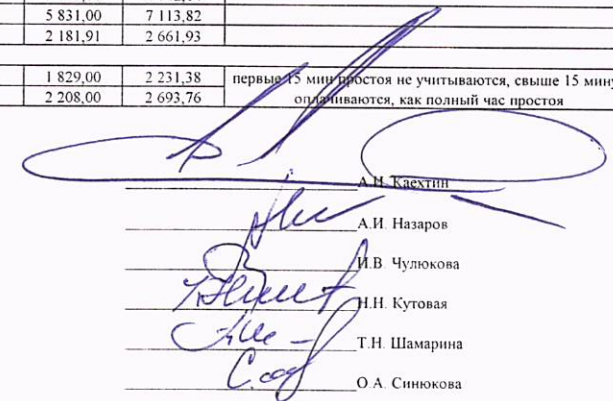 5 831,00 7 113,82
2 181,91 2 661,93
1 829,00 2 231,38 первые 15 мин простоя не учитываются, свыше 15 мину
2 208,00 2 693,76 оплачиваются, как полный час простоя
А.Н. Каехтин
А.И. Назаров
И.В. Чулюкова
Н.Н. Кутовая
Т.Н. Шамарина
О.А. Синюкова